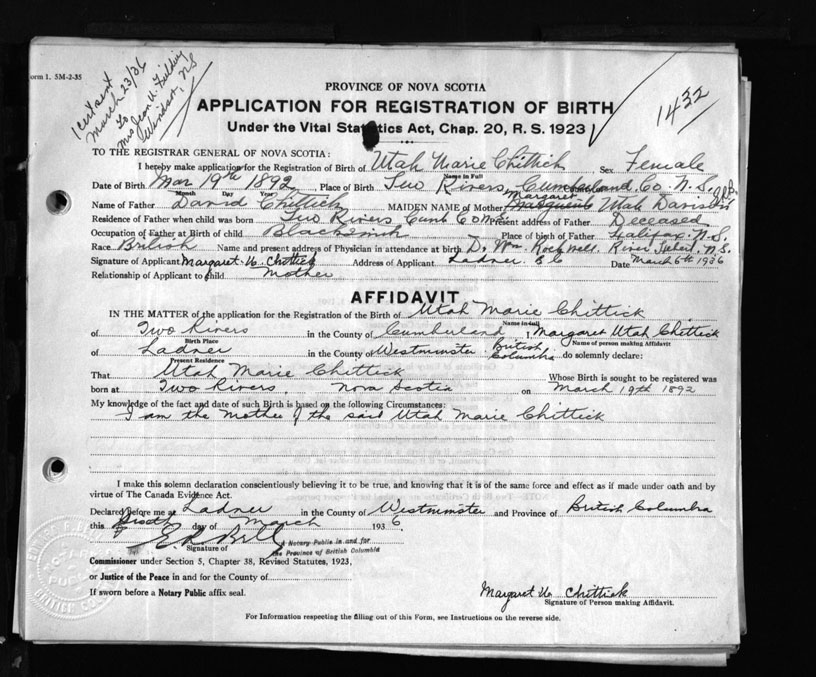 orm 1. 5M-2-35
1 cert sent
March 23/36
To
Mrs Jean U. Fielding
Windsor, N.S
1432
PROVINCE OF NOVA SCOTIA
APPLICATION FOR REGISTRATION OF BIRTH
Under the Vital Statistics Act, Chap. 20, R. S. 1923
TO THE REGISTRAR GENERAL OF NOVA SCOTIA:
I hereby make application for the Registration of Birth of Utah Marie Chittick Sex Female
Name in Full
Date of Birth Mar 19th 1892, Place of Birth Two Rivers Cumberland Co N.S.
Month Day Year
Margaret
Name of Father David Chittick MAIDEN NAME of Mother Marguerite Utah Davison
Residence of Father when child was born Two Rivers Cumb Co N.S. Present address of Father Deceased
Occupation of Father at Birth of child Blacksmith Place of birth of Father Halifax. N.S.
Race British Name and present address of Physician in attendance at birth Dr Wm. Rockwell. River Hebert. N.S.
Signature of Applicant Margaret. U. Chittick Address of Applicant Ladner. B C Date March 6th 1936
Relationship of Applicant to child Mother
AFFIDAVIT
IN THE MATTER of the application for the Registration of the Birth of Utah Marie Chittick
Name in full
of Two Rivers in the County of Cumberland I, Margaret Utah Chittick
Birth Place Name of person making Affidavit
of Ladner in the County of Westminster British Columbia do solemnly declare:
Present Residence
That Utah Marie Chittick Whose Birth is sought to be registered was
born at Two Rivers, Nova Scotia on March 19th 1892
My knowledge of the fact and date of such Birth is based on the following Circumstances:
I am the Mother of the said Utah Marie Chittick
I make this solemn declaration conscientiously believing it to be true, and knowing that it is of the same force and effect as if made under oath and by
virtue of The Canada Evidence Act.
Declared before me at Ladner in the County of Westminster and Province of British Columbia
this Sixth day of March 1936.
Signature of A Notary Public in and for
the Province of British Columbia
Commissioner under Section 5, Chapter 38, Revised Statutes, 1923,
or Justice of the Peace in and for the County of
If sworn before a Notary Public affix seal.
Margaret U. Chittick
Signature of Person making Affidavit.
For Information respecting the filling out of this Form, see Instructions on the reverse side.